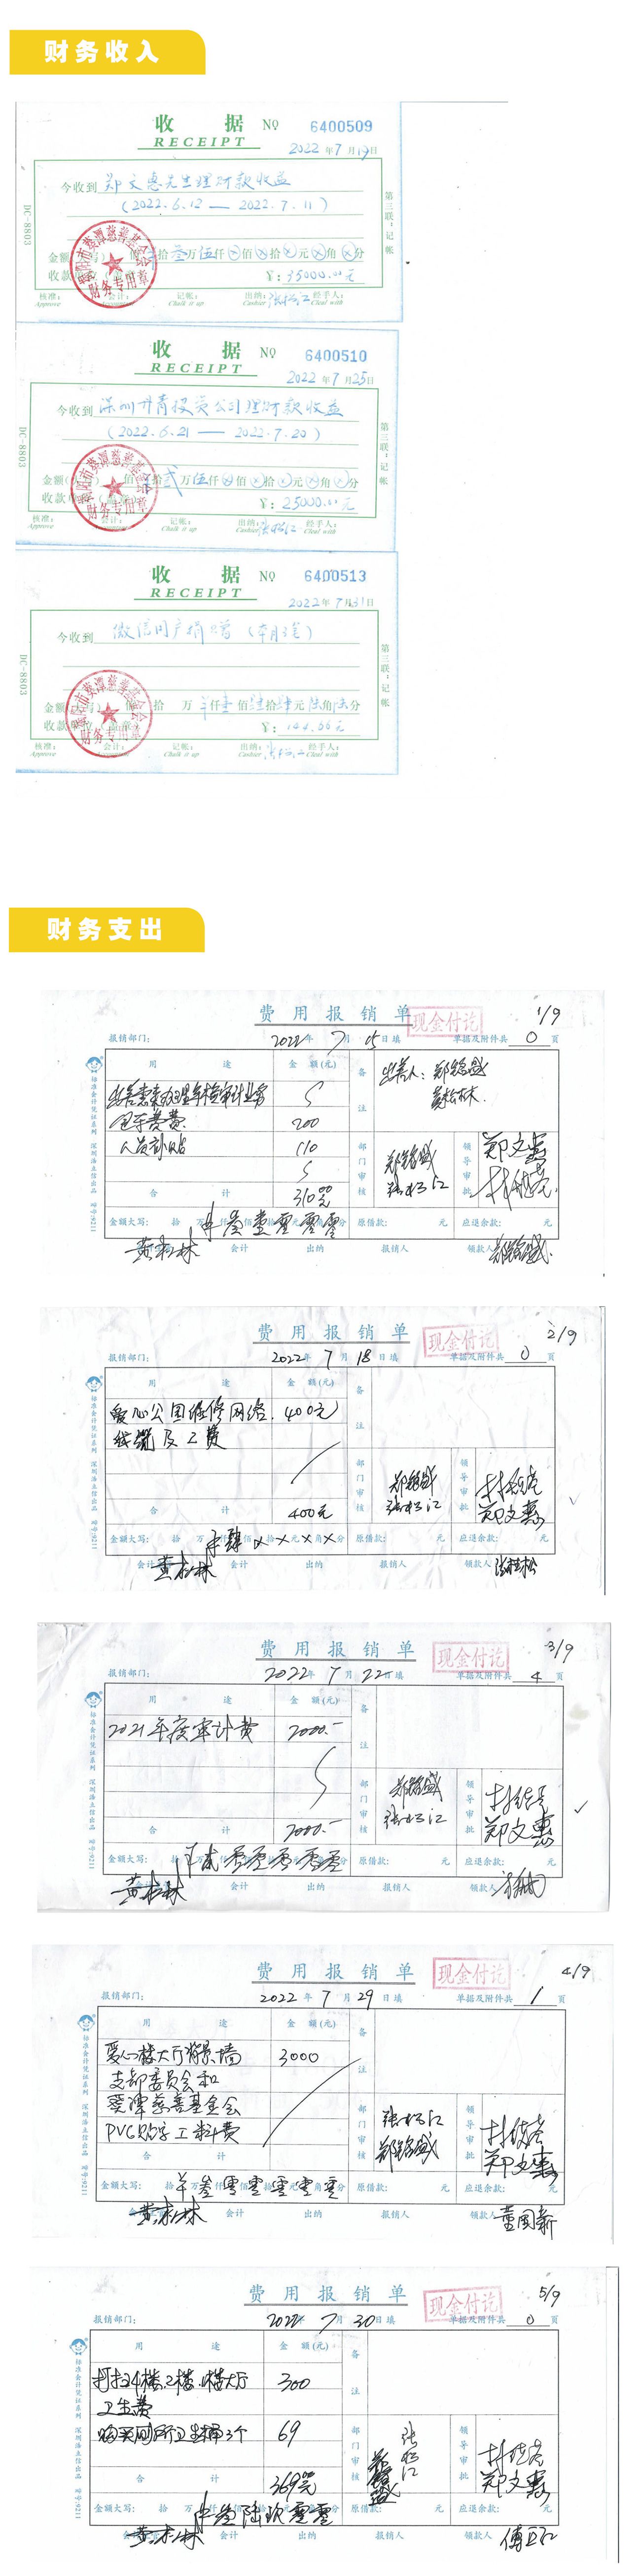 财务收入
收 据 № 6400509
RECEIPT
2022年7月19日
今收到 郑文惠先生理财款收益
(2022.6.12 — 2022.7.11)
金额 拾叁万伍仟⊗佰⊗拾⊗元⊗角⊗分
收款 ¥:35000.00元
核准: 会计: 记帐: 出纳: 张松江 经手人:
Approve Chalk it up Cashier Cleal with
DC-8803
第三联:记帐
揭阳市蓝潭慈善基金会
财务专用章
收 据 № 6400510
RECEIPT
2022年7月25日
今收到 深圳市菁投资公司理财款收益
(2022.6.21 — 2022.7.20)
金额 佰拾贰万伍仟⊗佰⊗拾⊗元⊗角⊗分
收款 ¥:25000.00元
核准: 会计: 记帐: 出纳: 张松江 经手人:
Approve Chalk it up Cashier Cleal with
DC-8803
第三联:记帐
财务专用章
收 据 № 6400513
RECEIPT
2022年7月31日
今收到 微信用户捐赠(本月3笔)
金额 佰 拾 万 仟壹佰肆拾肆元陆角陆分
收款 ¥:144.66元
核准: 会计: 记帐: 出纳: 张松江 经手人:
Approve Chalk it up Cashier Cleal with
DC-8803
第三联:记帐
财务专用章
财务支出
费用报销单 现金付讫 1/9
报销部门: 2022年7月15日填 单据及附件共 0 页
用 途 金 额(元) 备注 出差人:郑铭盛
黄松林
包车费 200
人员补贴 110
合 计 310元
部门审核 郑铭盛 张松江 领导审批 郑文惠
金额大写: 拾 万 仟叁佰壹拾零元零角零分 原借款: 元 应退余款: 元
黄松林 会计 出纳 报销人 领款人 郑铭盛
标准会计凭证系列 深圳浩立信出品 货号:9211
费用报销单 现金付讫 2/9
报销部门: 2022年7月18日填 单据及附件共 0 页
用 途 金 额(元) 备注
爱心公园维修网络 400元
线缆及工费
合 计 400元
部门审核 郑铭盛 张松江 领导审批 郑文惠
金额大写: 拾 万 仟肆佰×拾×元×角×分 原借款: 元 应退余款: 元
会计 黄松林 出纳 报销人 领款人
标准会计凭证系列 深圳浩立信出品 货号:9211
费用报销单 现金付讫 3/9
报销部门: 2022年7月22日填 单据及附件共 4 页
用 途 金 额(元) 备注
2021年度审计费 2000.-
合 计 2000.-
部门审核 郑铭盛 张松江 领导审批 郑文惠
金额大写: 拾 万贰仟零佰零拾零元零角零分 原借款: 元 应退余款: 元
黄松林 会计 出纳 报销人 领款人
标准会计凭证系列 深圳浩立信出品 货号:9211
费用报销单 现金付讫 4/9
报销部门: 2022年7月29日填 单据及附件共 1 页
用 途 金 额(元) 备注
爱心楼大厅背景墙 3000
支部委员会和
蓝潭慈善基金会
PVC贴字工料费
部门审核 张松江 郑铭盛 领导审批 郑文惠
金额大写: 拾 万叁仟零佰零拾零元零角零分 原借款: 元 应退余款: 元
黄松林 会计 出纳 报销人 领款人 董国新
标准会计凭证系列 深圳浩立信出品 货号:9211
费用报销单 现金付讫 5/9
报销部门: 2022年7月30日填 单据及附件共 0 页
用 途 金 额(元) 备注
打扫4楼、2楼、1楼大厅 300
卫生费
购买厕所卫生桶3个 69
合 计 369元
部门审核 张松江 郑铭盛 领导审批 郑文惠
金额大写: 拾 万 仟叁佰陆拾玖元零角零分 原借款: 元 应退余款: 元
黄松林 会计 出纳 报销人 领款人
标准会计凭证系列 深圳浩立信出品 货号:9211